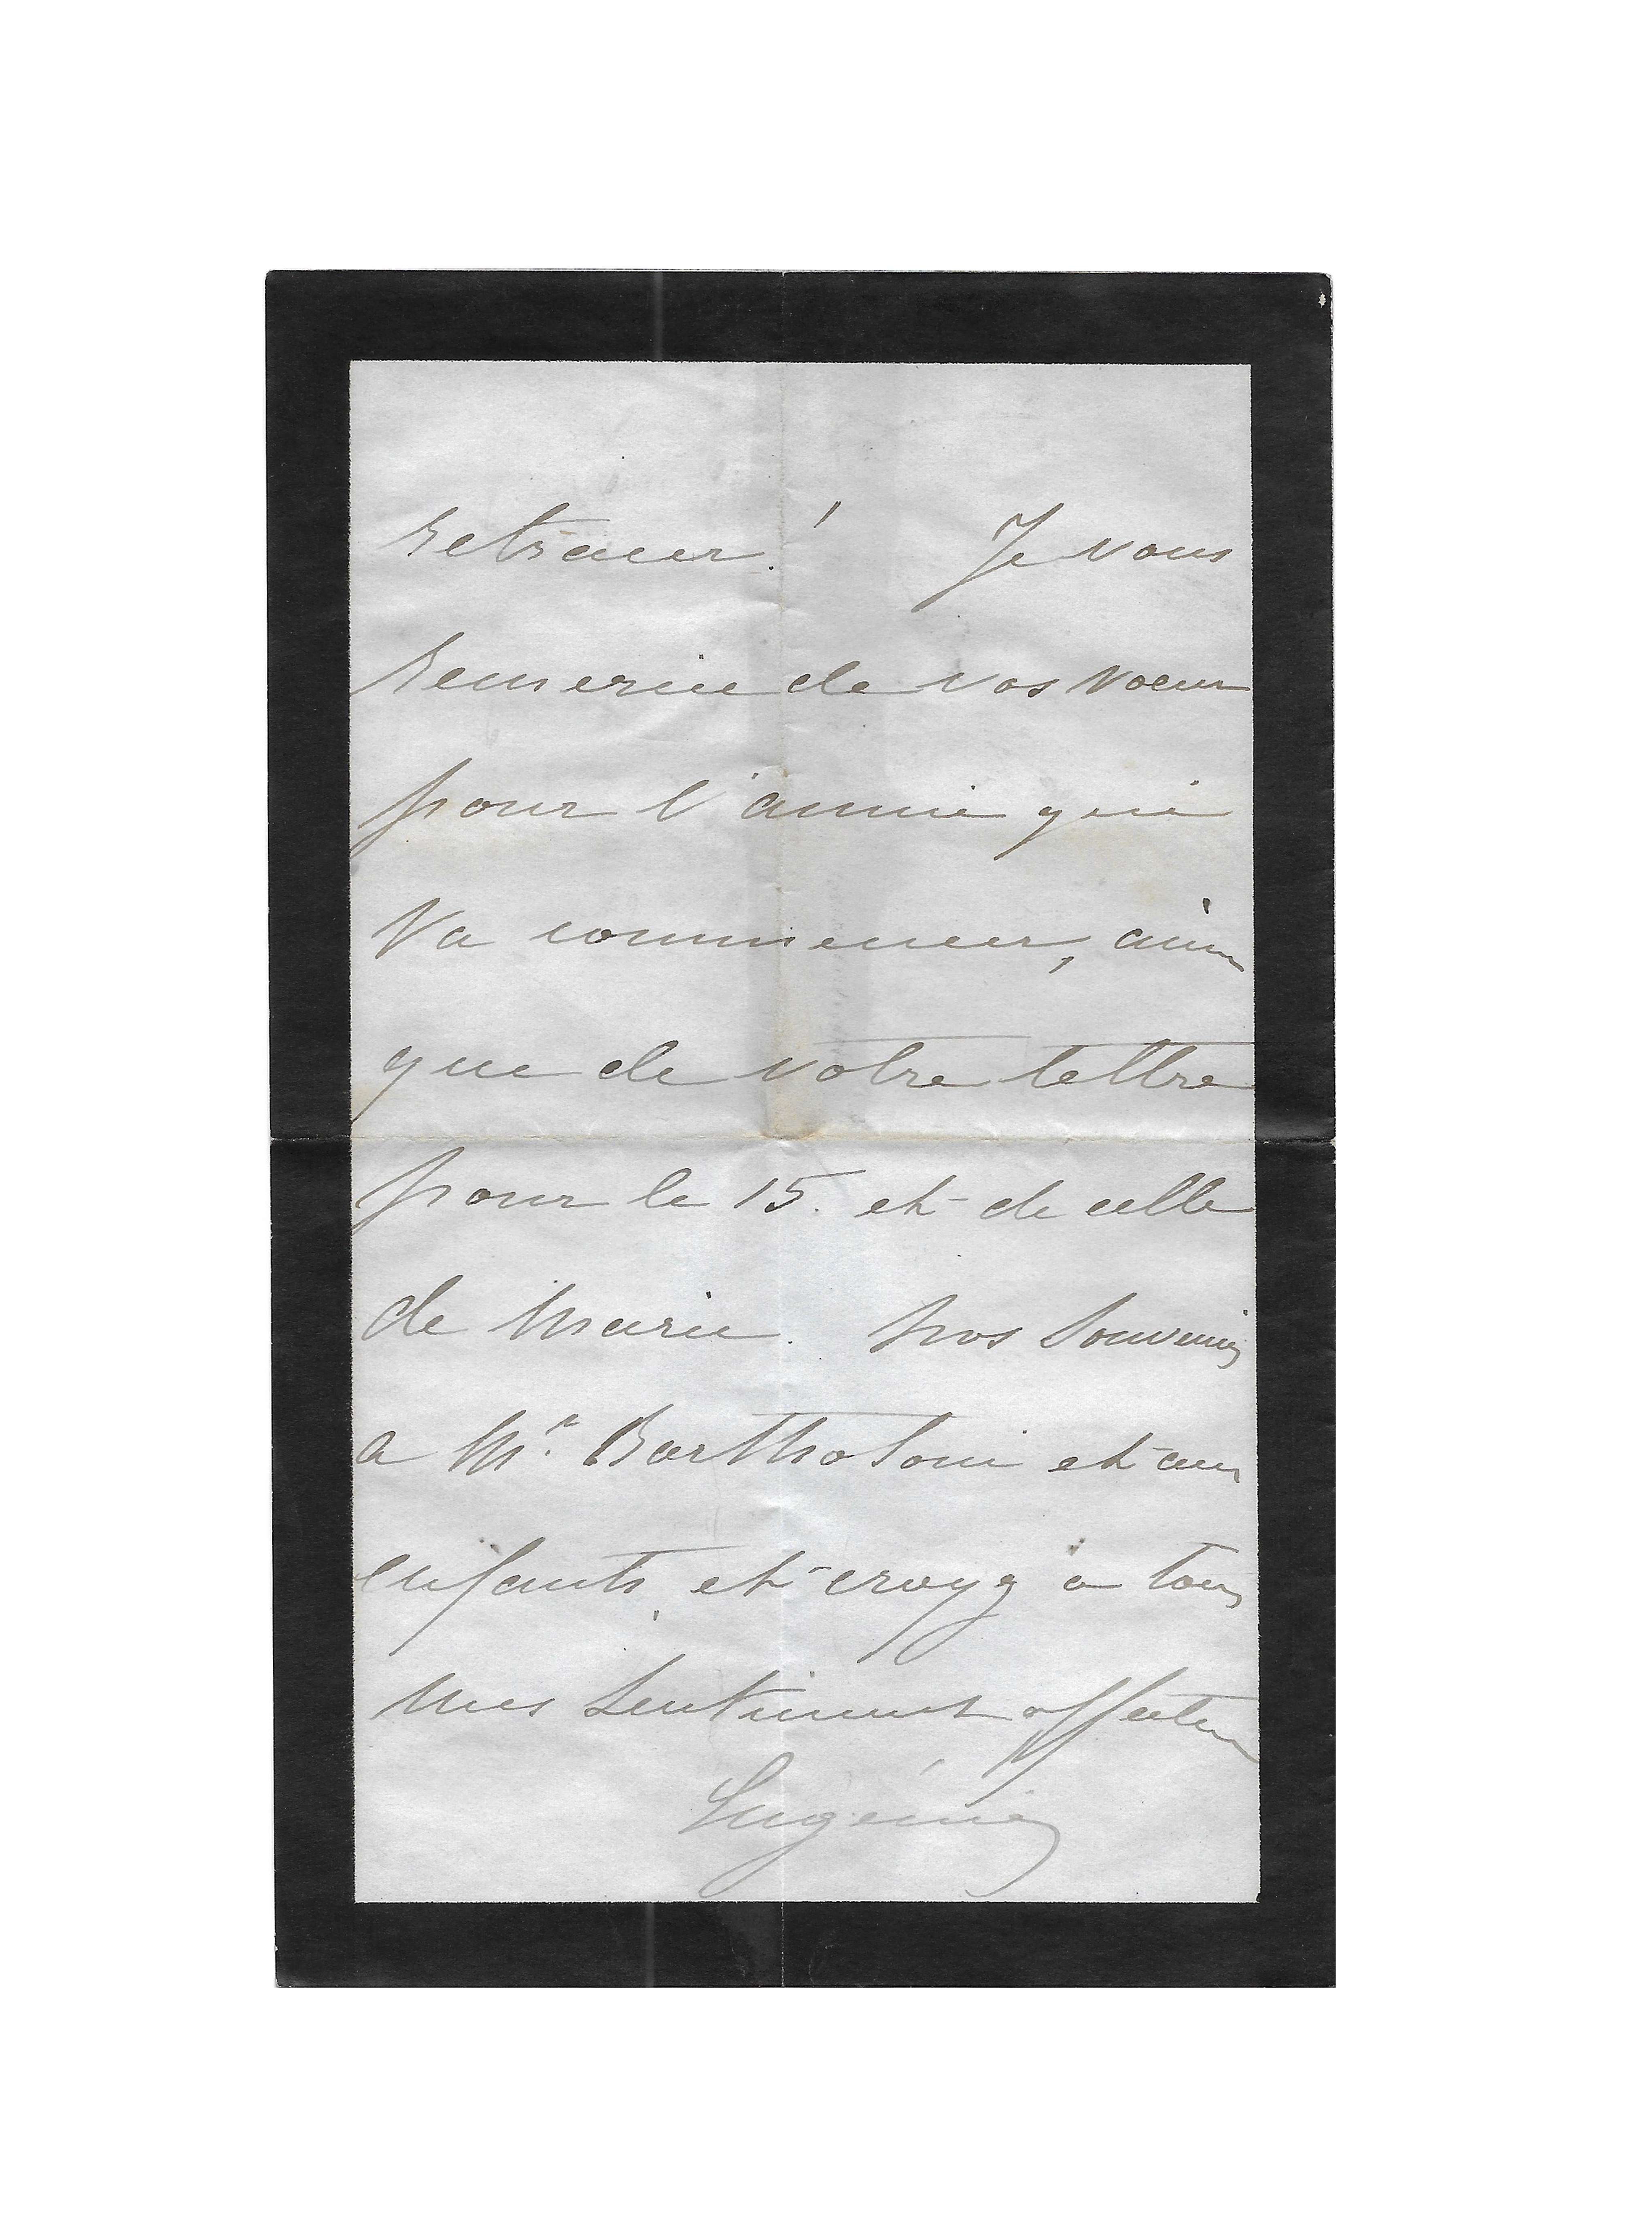 retracer! Je vous
remercie de vos voeux
pour l'année qui
va commencer, ainsi
que de votre lettre
pour le 15. et de celle
de Marie. Mes souvenirs
a Mr. Bartholoni et aux
enfants, et croyez à tous
mes sentiments affectueux
Eugénie